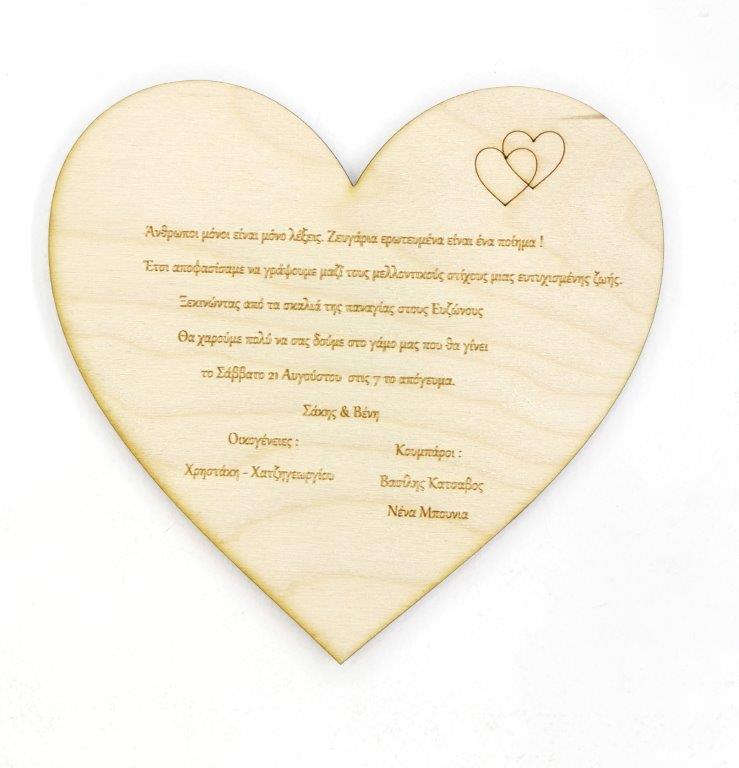 Άνθρωποι μόνοι είναι μόνο λέξεις. Ζευγάρια ερωτευμένα είναι ένα ποίημα !
Έτσι αποφασίσαμε να γράψουμε μαζί τους μελλοντικούς στίχους μιας ευτυχισμένης ζωής.
Ξεκινώντας από τα σκαλιά της παναγίας στους Ευζώνους
Θα χαρούμε πολύ να σας δούμε στο γάμο μας που θα γίνει
το Σάββατο 21 Αυγούστου στις 7 το απόγευμα.
Σάκης & Βένη
Οικογένειες :
Χρηστάκη - Χατζηγεωργίου
Κουμπάροι :
Βασίλης Κατσαβος
Νένα Μπουνια